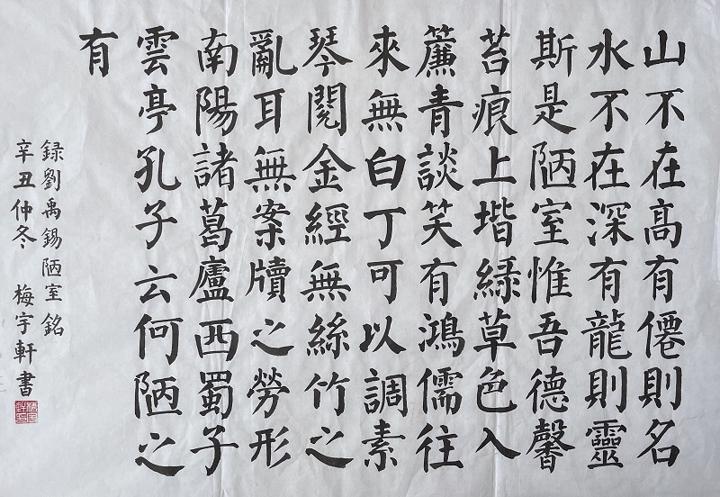 山不在高有僊則名
水不在深有龍則靈
斯是陋室惟吾德馨
苔痕上堦綠草色入
簾青談笑有鴻儒往
來無白丁可以調素
琴閱金經無絲竹之
亂耳無案牘之勞形
南陽諸葛廬西蜀子
雲亭孔子云何陋之
有
録劉禹錫陋室銘
辛丑仲冬 梅宇軒書